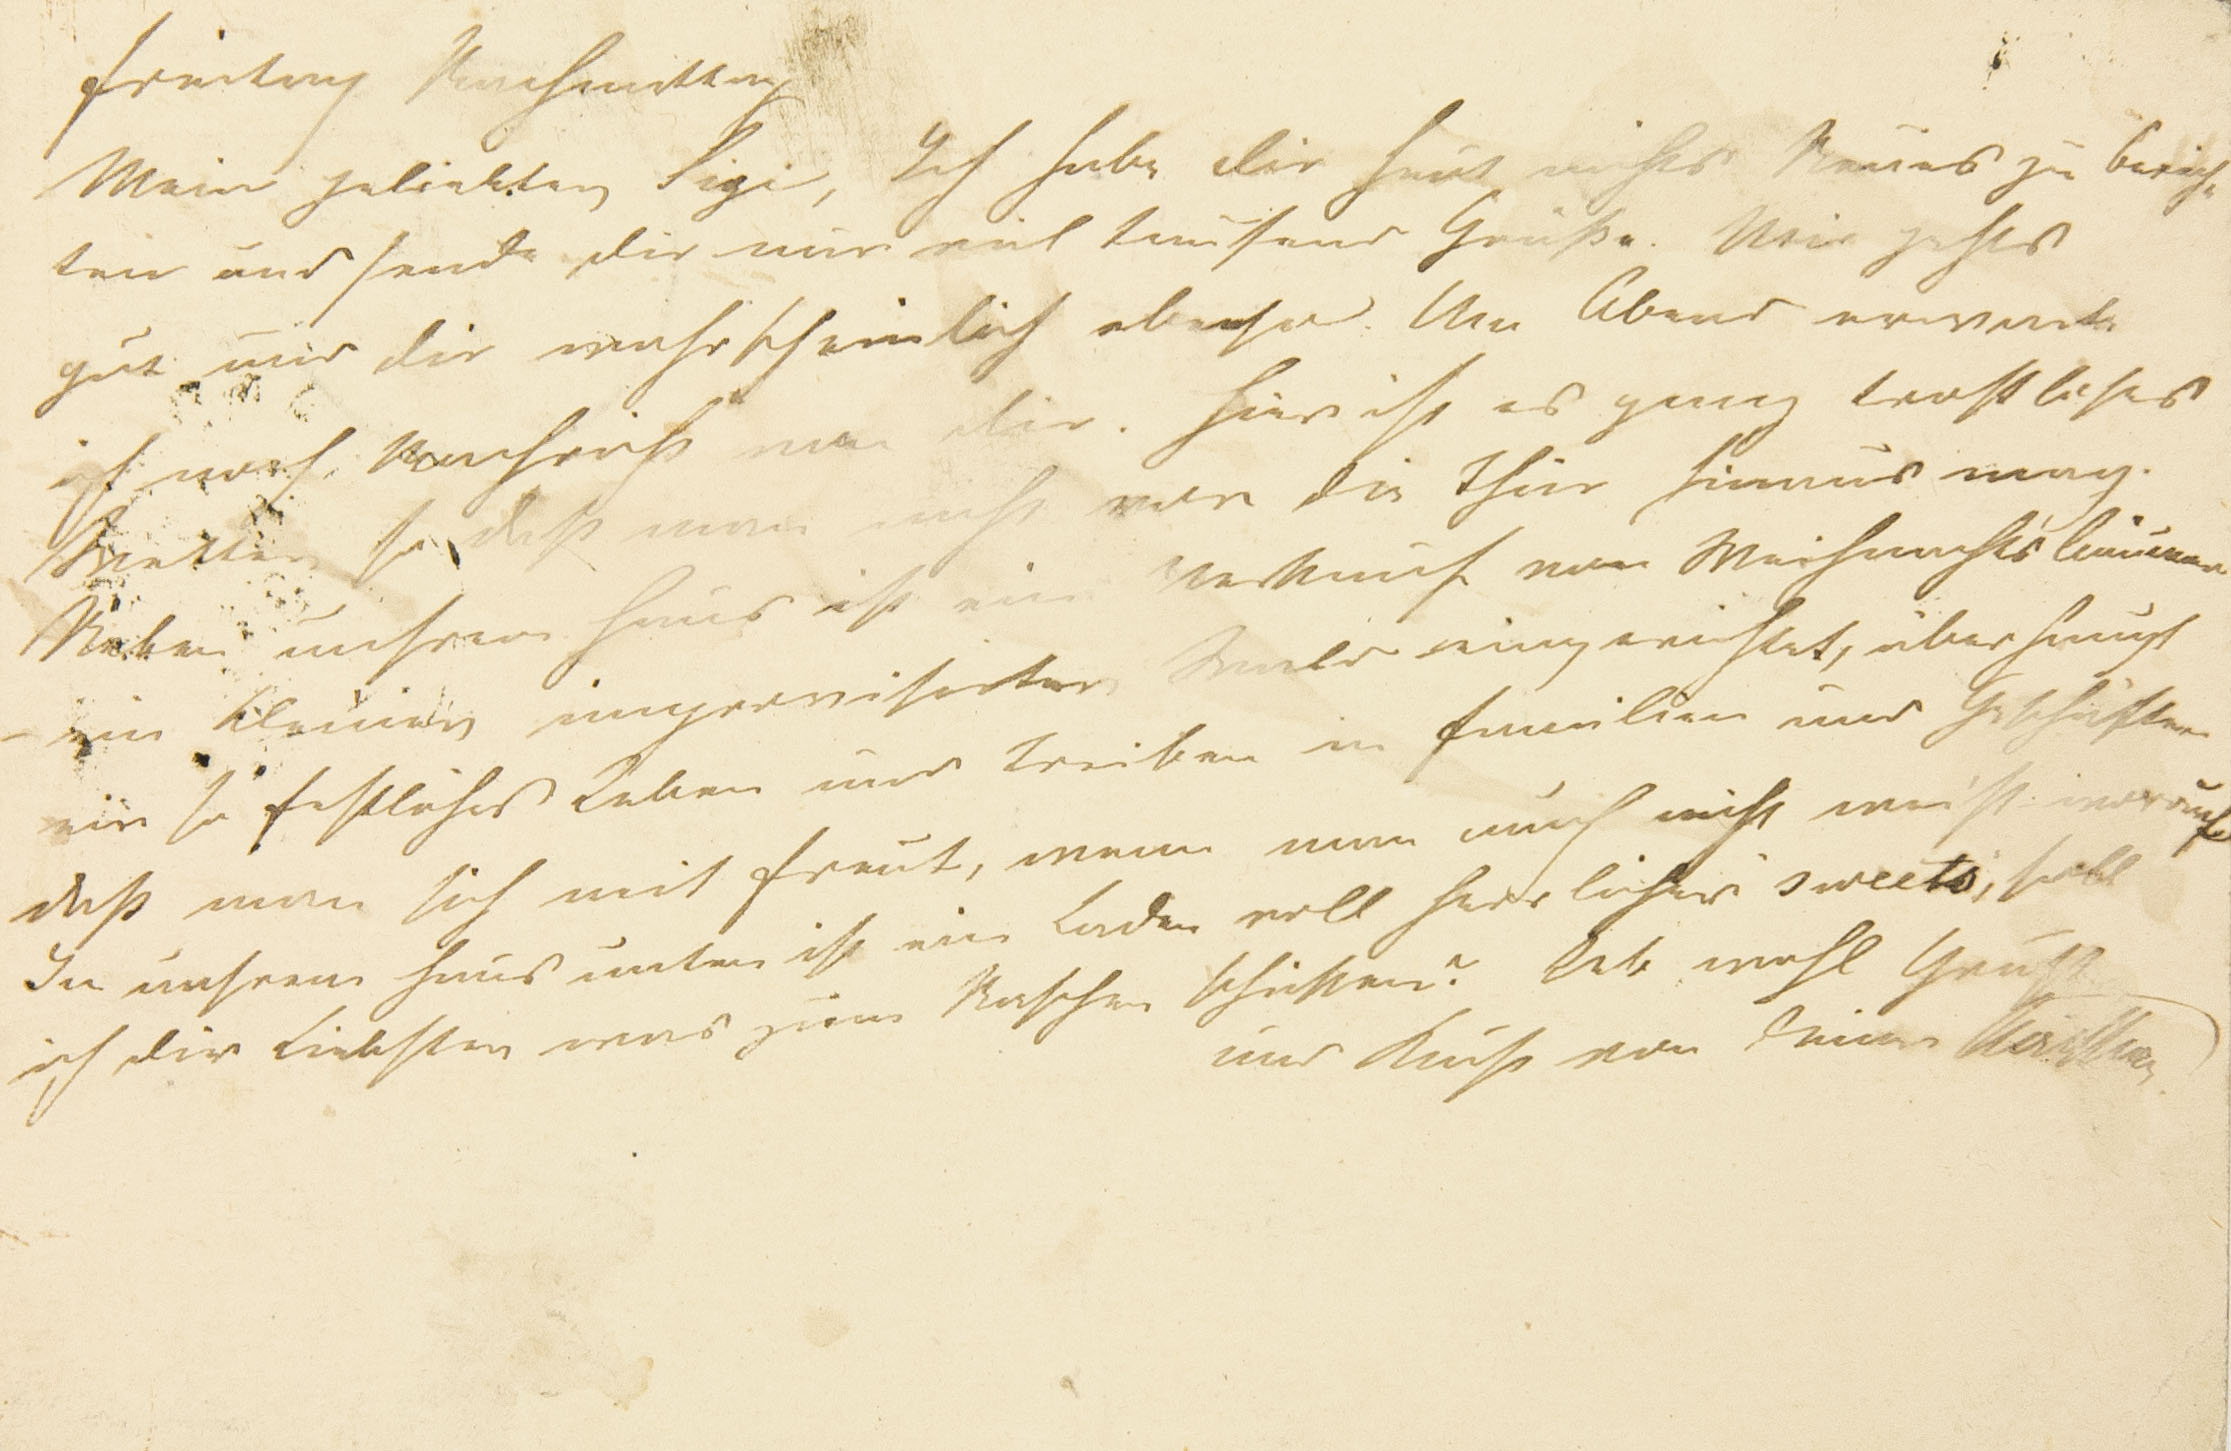 Freitag Nachmittag
Mein geliebter Sigi, Ich habe dir heut nichts Neues zu berich-
ten und sende dir nur viel tausend Grüße. Mir gehts
gut und dir wahrscheinlich ebenso. Am Abend erwarte
ich noch Nachricht von dir. Hier ist es ganz trostloses
Wetter, so daß man nicht vor die Thür hinaus mag.
Neben unsrem Haus ist ein Verkauf von Weihnachtsbäumen
ein kleiner improvisirter Wald eingerichtet, überhaupt
ein so festliches Leben und Treiben in Familien und Geschäften
daß man sich mit freut, wenn man auch nicht weiß worauf
In unsrem Haus unten ist ein Laden voll herrlicher sweets, soll
ich dir Liebster was zum Naschen schicken? Leb wohl Gruß
und Kuß von Deiner